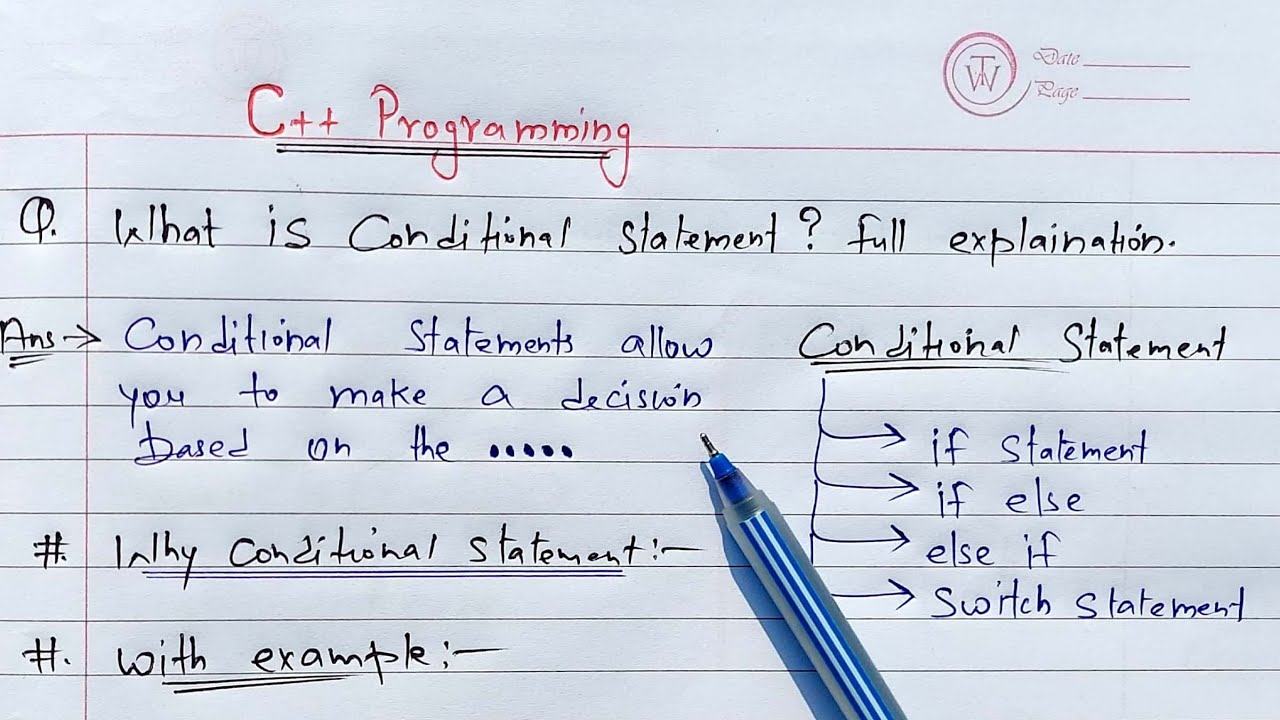 TW Date
Page
C++ Programming
Q. What is Conditional statement? full explaination.
Ans → Conditional statements allow
you to make a decision
based on the •••••
Conditional Statement
→ if statement
→ if else
→ else if
→ Switch statement
#. Why Conditional statement:—
#. with example:—